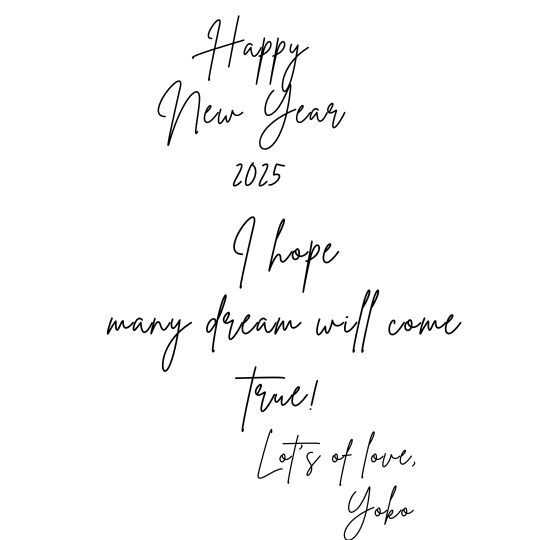 Happy
New Year
2025
I hope
many dream will come
true!
Lot's of love,
Yoko